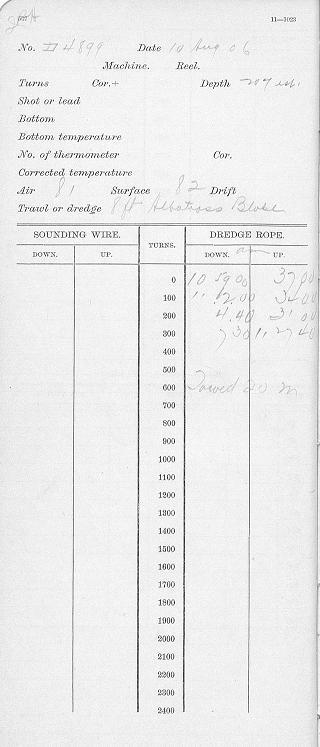 11—1023
No. D 4899 Date 10 Aug 06
Machine. Reel.
Turns Cor.+ Depth
Shot or lead
Bottom
Bottom temperature
No. of thermometer Cor.
Corrected temperature
Air 81 Surface 82 Drift
Trawl or dredge 8 ft Albatross Blake
SOUNDING WIRE. TURNS. DREDGE ROPE.
DOWN. UP. DOWN. am UP.
0 10 59 00 37 00
100 11 2.00 34 00
200 4.40 31 00
300 7 30 11, 27 40
400
500
600 Towed 20 m
700
800
900
1000
1100
1200
1300
1400
1500
1600
1700
1800
1900
2000
2100
2200
2300
2400